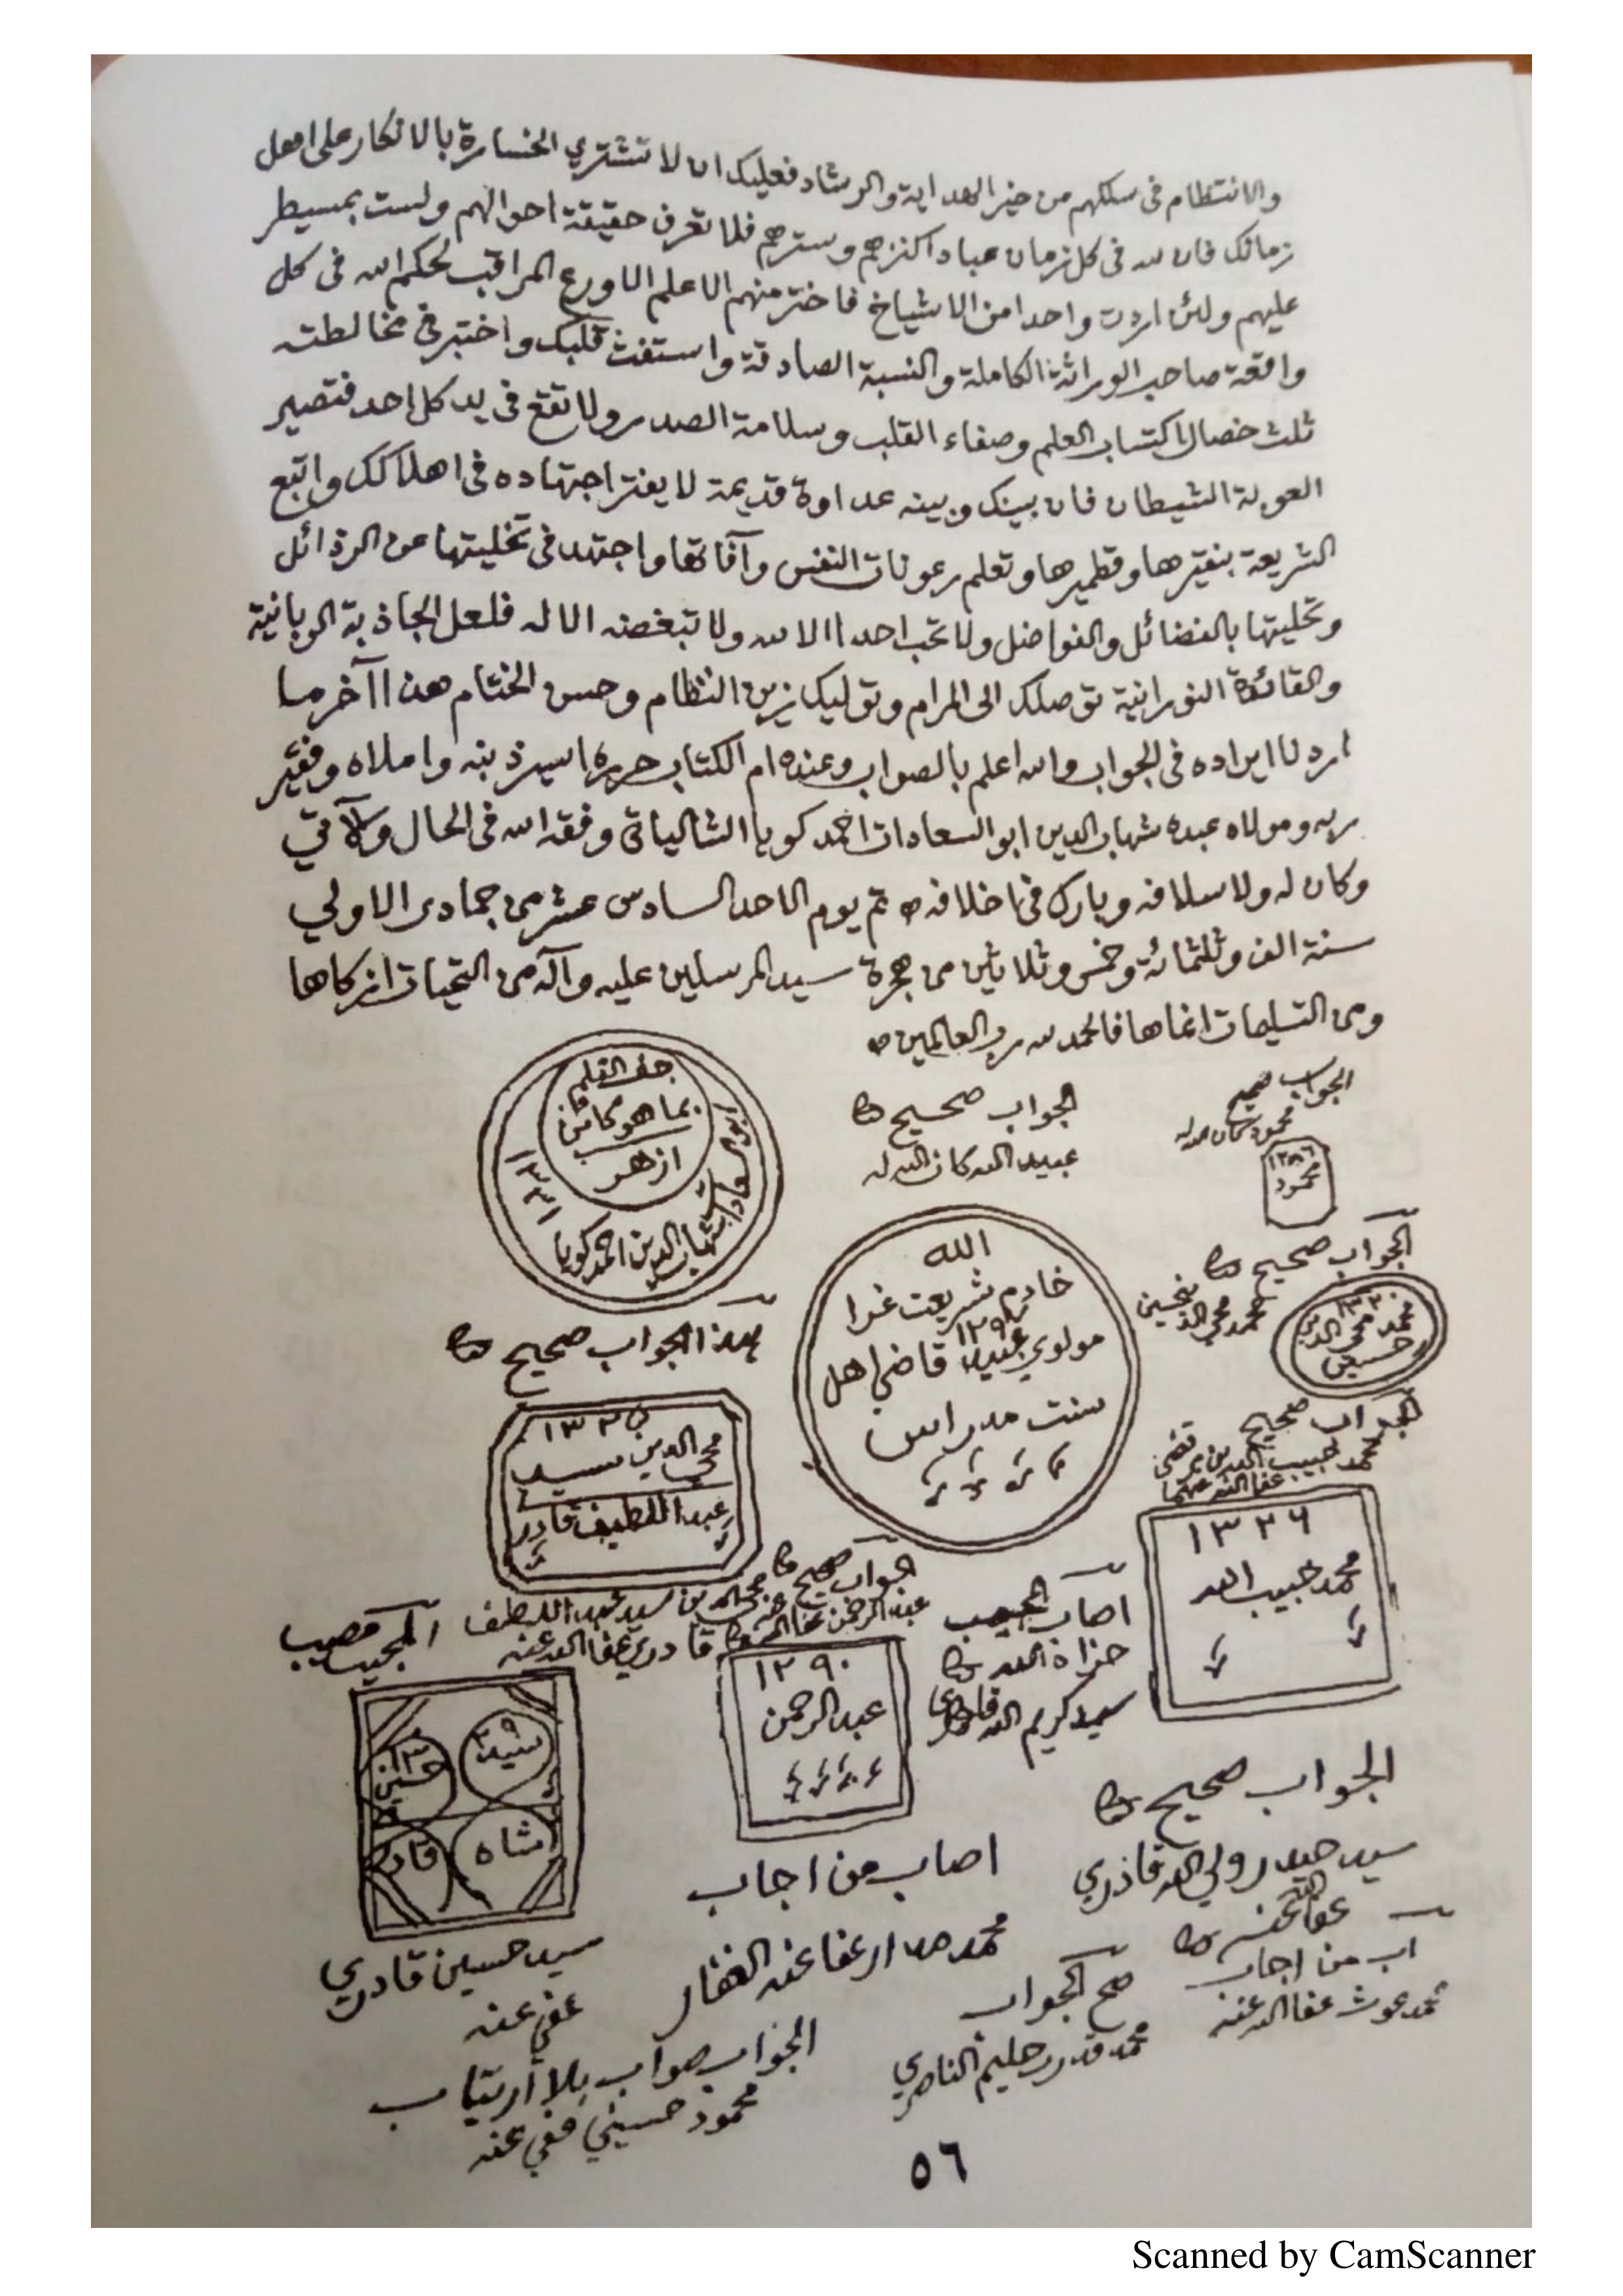 والانتظام في سلكهم من خير الهداية والرشاد فعليك ان لا تشتري الخسارة بالانكار على اهل
زمانك فان لله في كل زمان عبادا كنزهم وسترهم فلا تعرف حقيقة احوالهم ولست بمسيطر
عليهم ولئن اردت واحدا من الاشياخ فاختر منهم الاعلم الاورع المراقب لحكم الله في كل
واقعة صاحب الوراثة الكاملة والنسبة الصادقة واستفت قلبك واختبر في مخالطته
ثلث خصال اكتساب العلم وصفاء القلب وسلامة الصدر ولا تقع في يد كل احد فتصير
العوبة الشيطان فان بينك وبينه عداوة قديمة لا يفتر اجتهاده في اهلاكك واتبع
الشريعة بنقيرها وقطميرها وتعلم رعونات النفس وآفاتها واجتهد في تخليتها عن الرذائل
وتحليتها بالفضائل والفواضل ولا تحب احدا الا لله ولا تبغضه الا له فلعل الجاذبة الربانية
والقائدة النورانية توصلك الى المرام وتوليك زين النظام وحسن الختام هذا آخر ما
اردنا ايراده في الجواب والله اعلم بالصواب وعنده ام الكتاب حرره اسير ذنبه واملاه وفقير
ربه ومولاه عبده شهاب الدين ابو السعادات احمد كويا الشالياتي وفقه الله في الحال والآتي
وكان له ولاسلافه وبارك في اخلافه تم يوم الاحد السادس عشر من جمادى الاولى
سنة الف وثلثمائة وخمس وثلاثين من هجرة سيد المرسلين عليه وآله من التحيات ازكاها
ومن التسليمات انماها فالحمد لله رب العالمين
الجواب صحيح
محمود كان الله له
١٢٨٦
محمود
الجواب صحيح
عبيد الله كان الله له
جف القلم
بما هو كائن
ازهر
ابو السعادات شهاب الدين احمد كويا
١٣٣١
الجواب صحيح
محمد محي الدين حسين
١٣٢٠
محمد محي الدين
حسين
الله
خادم شريعت غرا
١٢٩٨
مولوي عبيد الله قاضي اهل
سنت مدراس
هذا الجواب صحيح
١٣٢٥
محي الدين سيد
عبد اللطيف قادري
محي الدين بن سيد عبد اللطيف
قادري عفا الله عنه
الجواب صحيح
محمد حبيب الله بن مرتضى
عفا الله عنهما
١٣٢٦
محمد حبيب الله
الجواب صحيح
عبد الرحمن عفا الله عنه
١٢٩٠
عبد الرحمن
اصاب المجيب
جزاه الله
سيد كريم الله قادري
المجيب مصيب
١٣٢٩
سيد
حسين
شاه
قادري
سيد حسين قادري
عفي عنه
الجواب صحيح
سيد حيدر ولي الله قادري
عفا الله عنه
اصاب من اجاب
محمد مدار عفا عنه الغفار
من اجاب
محمد غوث عفا الله عنه
صح الجواب
محمد قدرت حليم الناصري
الجواب صواب بلا ارتياب
محمود حسيني عفي عنه
٥٦
Scanned by CamScanner